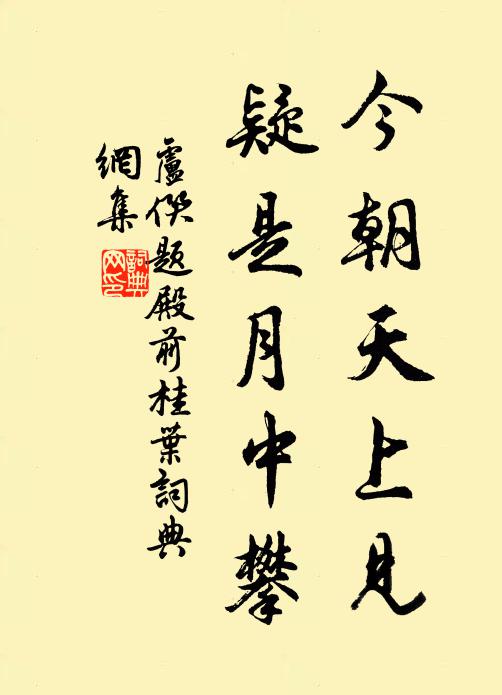 今朝天上見
疑是月中攀
盧僎題殿前桂葉詞典
網集
詞典
网印